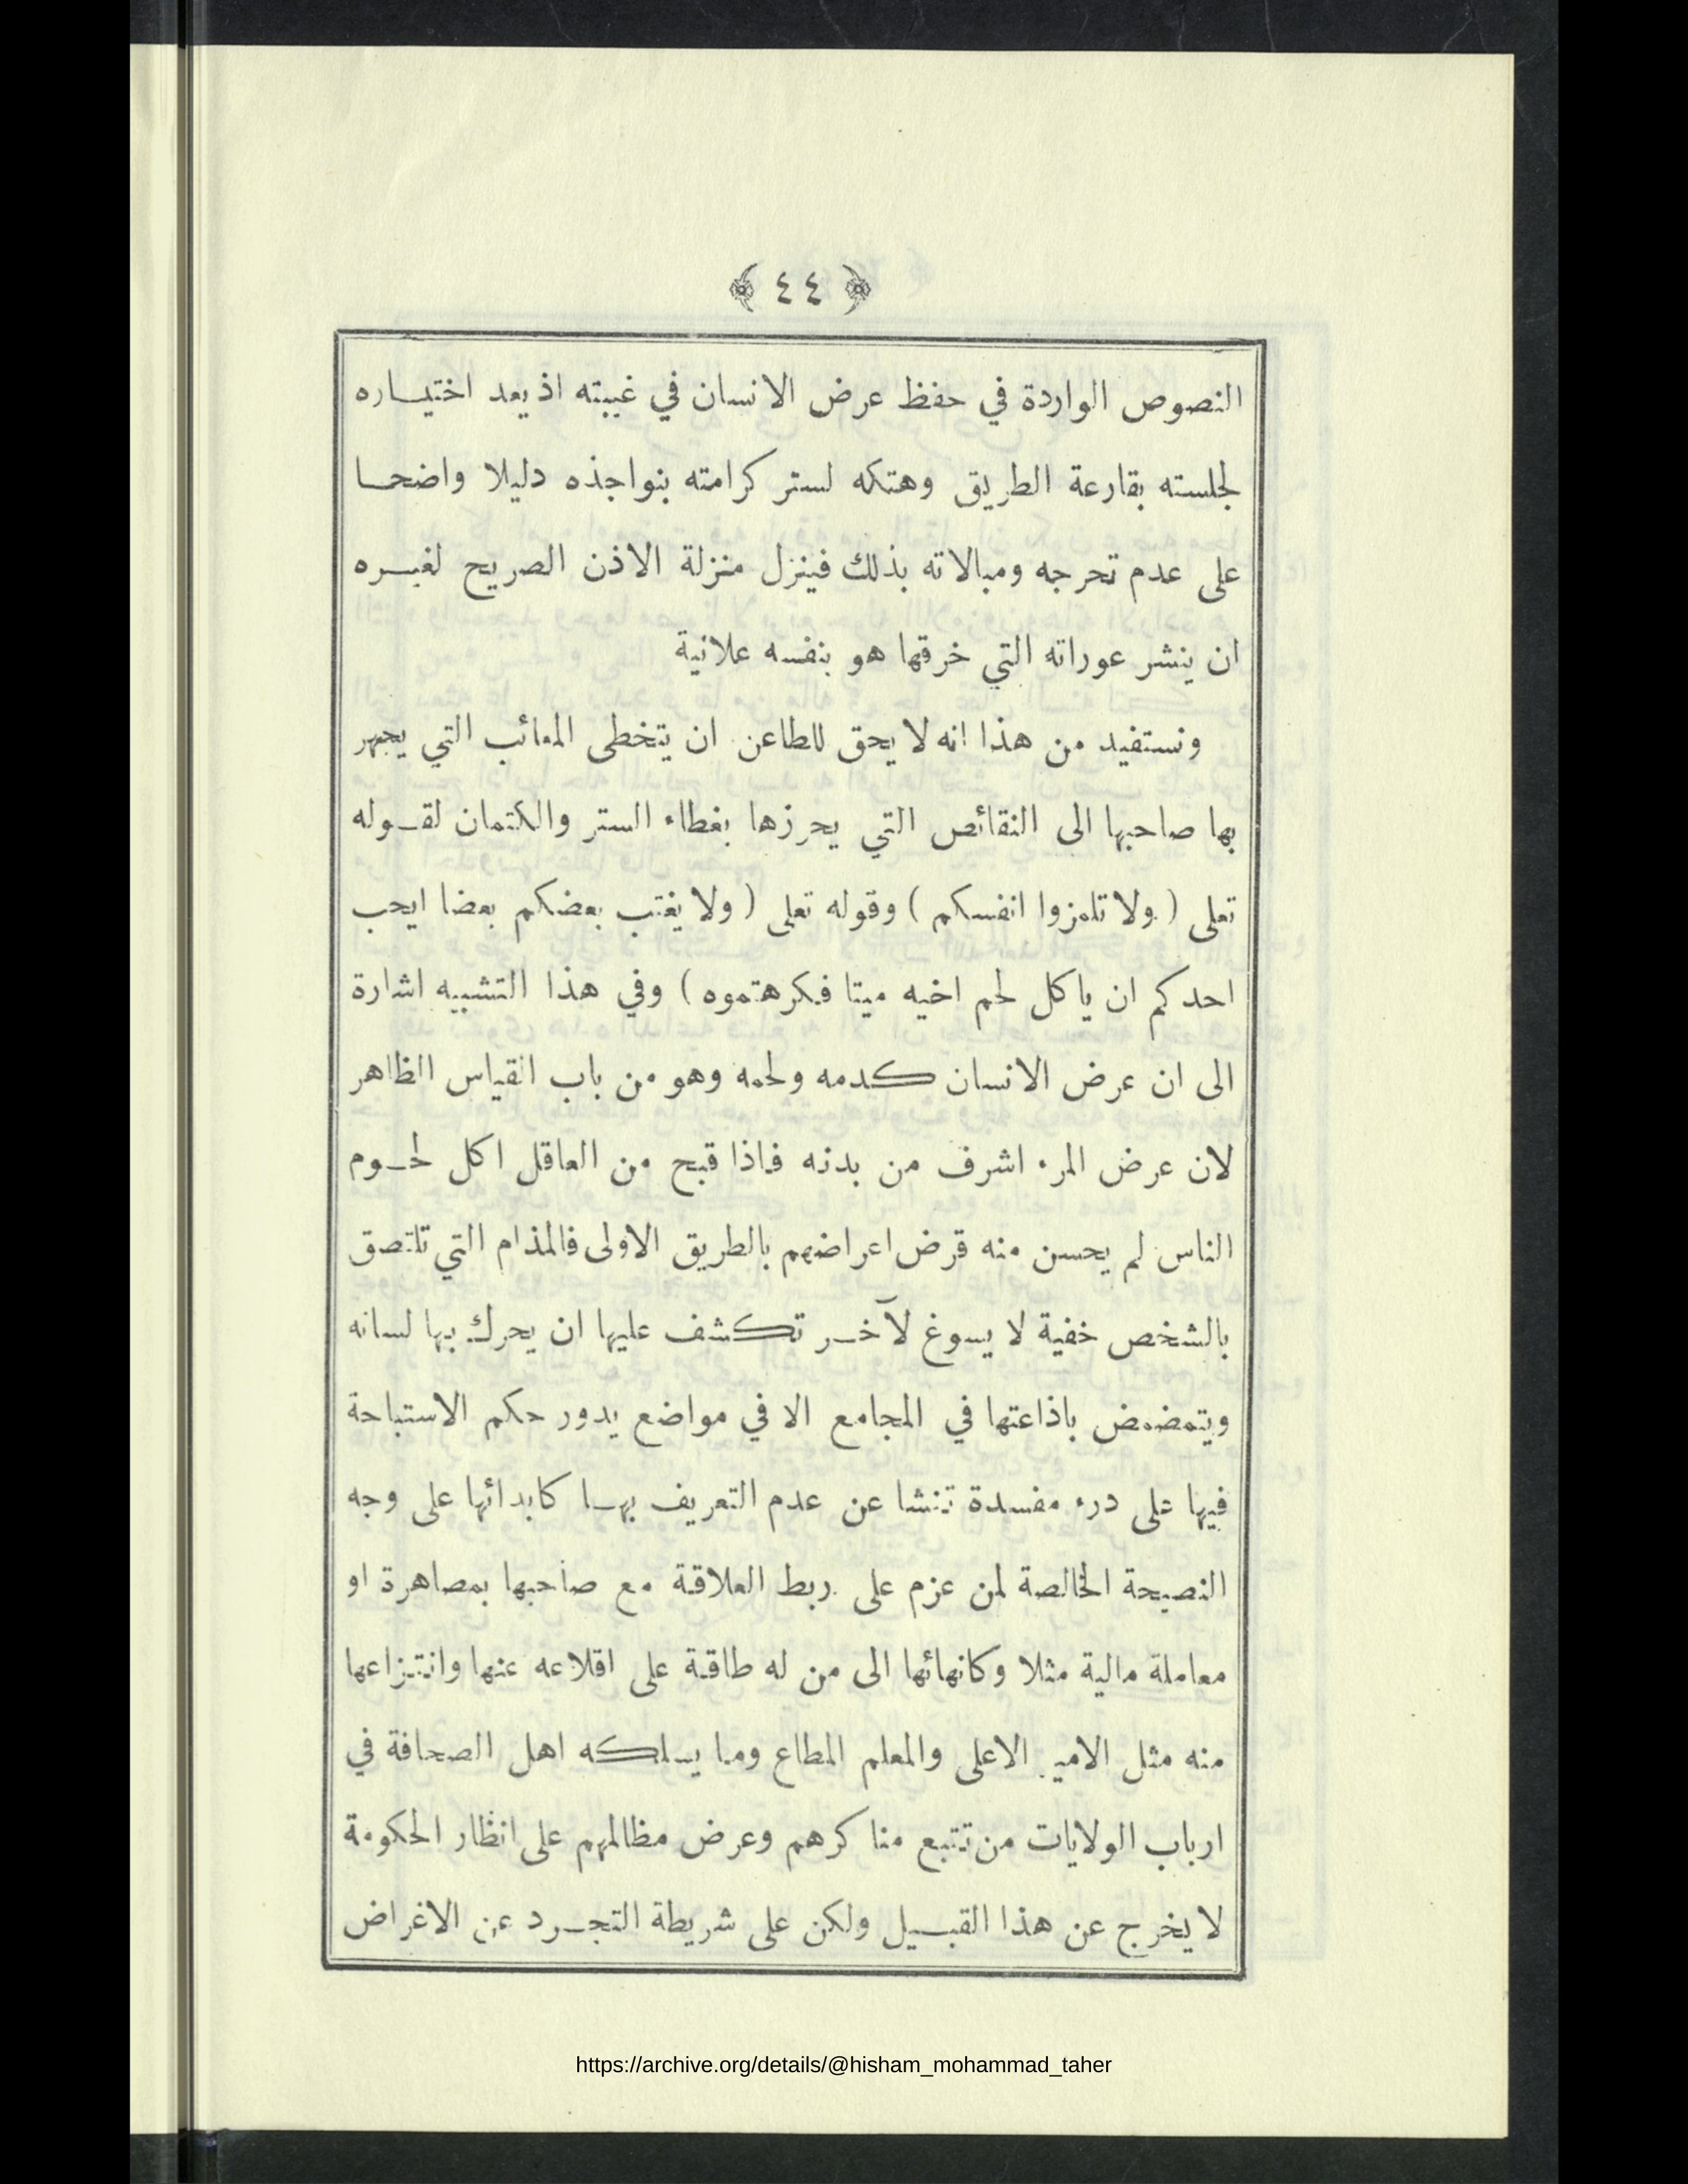 ﴿ ٤٤ ﴾
النصوص الواردة في حفظ عرض الانسان في غيبته اذ يعد اختيـاره
لجلسته بقارعة الطريق وهتكه لستر كرامته بنواجذه دليلا واضحـا
على عدم تحرجه ومبالاته بذلك فينزل منزلة الاذن الصريح لغيـره
ان ينشر عوراته التي خرقها هو بنفسه علانية
ونستفيد من هذا انه لا يحق للطاعن ان يتخطى المعائب التي يجهر
بها صاحبها الى النقائص التي يحرزها بغطاء الستر والكتمان لقـوله
تعلى ( ولا تلمزوا انفسكم ) وقوله تعلى ( ولا يغتب بعضكم بعضا ايحب
احدكم ان ياكل لحم اخيه ميتا فكرهتموه ) وفي هذا التشبيه اشارة
الى ان عرض الانسان كـدمه ولحمه وهو من باب القياس الظاهر
لان عرض المرء اشرف من بدنه فاذا قبح من العاقل اكل لحـوم
الناس لم يحسن منه قرض اعراضهم بالطريق الاولى فالمذام التي تلتصق
بالشخص خفية لا يسوغ لآخـر تكشف عليها ان يحرك بها لسانه
ويتمضمض باذاعتها في المجامع الا في مواضع يدور حكم الاستباحة
فيها على درء مفسدة تنشا عن عدم التعريف بهـا كابدائها على وجه
النصيحة الخالصة لمن عزم على ربط العلاقة مع صاحبها بمصاهرة او
معاملة مالية مثلا وكانهائها الى من له طاقة على اقلاعه عنها وانتزاعها
منه مثل الامير الاعلى والمعلم المطاع وما يسلكه اهل الصحافة في
ارباب الولايات من تتبع مناكرهم وعرض مظالمهم على انظار الحكومة
لا يخرج عن هذا القبـيل ولكن على شريطة التجـرد عن الاغراض
https://archive.org/details/@hisham_mohammad_taher